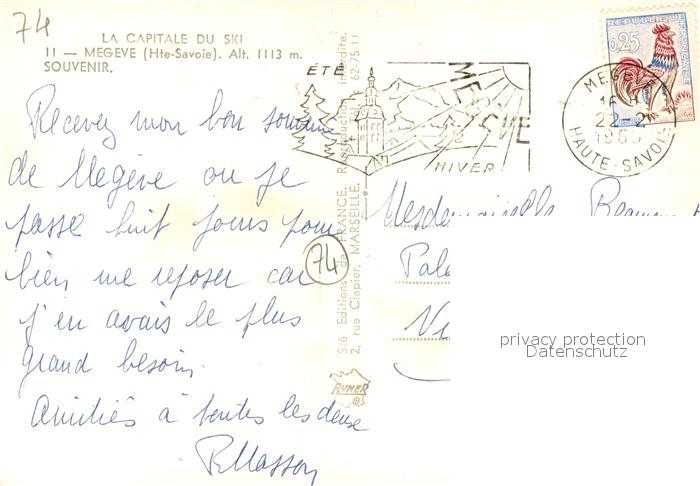 74
LA CAPITALE DU SKI
11 — MEGEVE (Hte-Savoie). Alt. 1113 m.
SOUVENIR.
Recevez mon bon souvenir
de Megève ou je
passe huit jours pour
bien me reposer car
j'en avais le plus
grand besoin.
Amitiés à toutes les deux
74
S^té Editions de FRANCE. Reproduction interdite.
2, rue Clapier, MARSEILLE. 62-75-11
RUNER
ÉTÉ
MEGÈVE
HIVER
REPUBLIQUE
0,25
MEGEVE
16 H
22-2
HAUTE-SAVOIE
Mesdemoiselles
privacy protection
Datenschutz